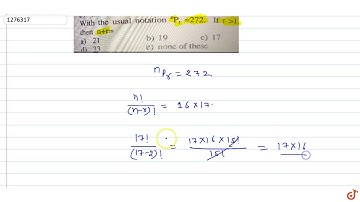 1276317
With the usual notation ⁿPᵣ =272. If r >1,
then n+r=
a) 21 b) 19 c) 17
d) 23 e) none of these
ⁿPᵣ = 272
n! / (n-r)! = 16 × 17
17! / (17-2)! = 17 × 16 × 15! / 15! = 17 × 16